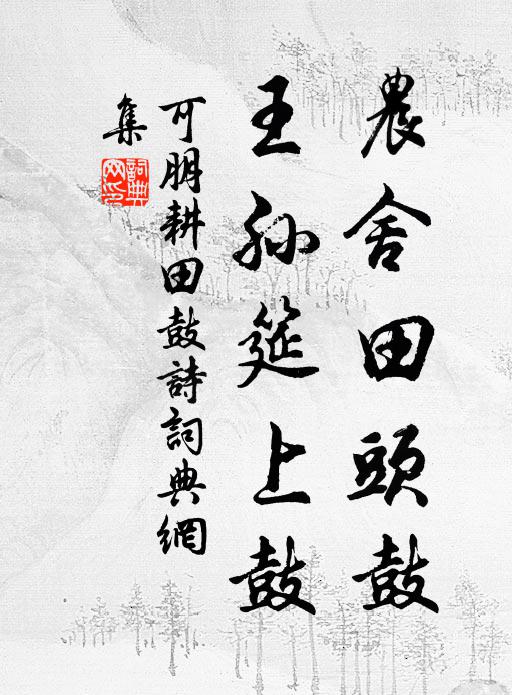 農舍田頭鼓
王孫筵上鼓
可朋耕田鼓詩詞典網
集
詞典
网印